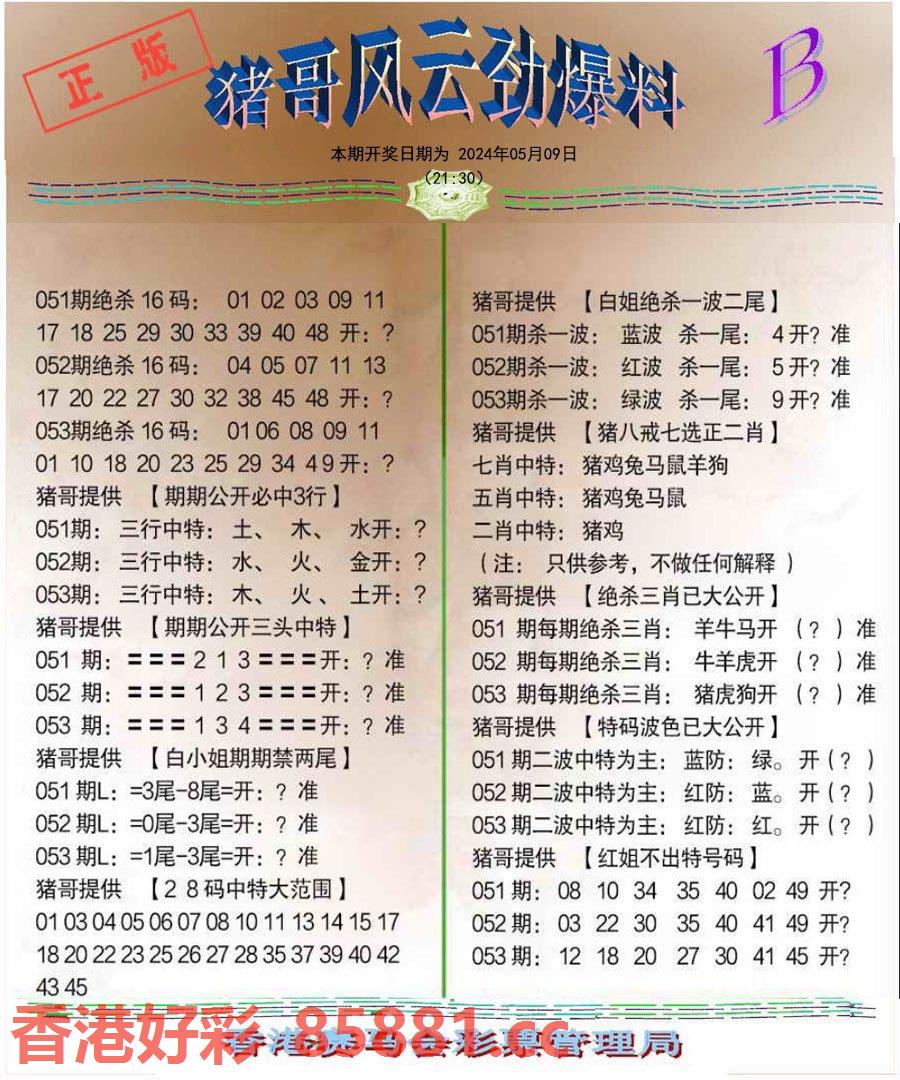 正版
猪哥风云劲爆料
B
本期开奖日期为 2024年05月09日
(21:30)
051期绝杀16码: 01 02 03 09 11
17 18 25 29 30 33 39 40 48 开: ?
052期绝杀16码: 04 05 07 11 13
17 20 22 27 30 32 38 45 48 开: ?
053期绝杀16码: 01 06 08 09 11
01 10 18 20 23 25 29 34 49开: ?
猪哥提供 【期期公开必中3行】
051期: 三行中特: 土、 木、 水开: ?
052期: 三行中特: 水、 火、 金开: ?
053期: 三行中特: 木、 火、 土开: ?
猪哥提供 【期期公开三头中特】
051 期: 〓〓〓2 1 3〓〓〓开: ? 准
052 期: 〓〓〓1 2 3〓〓〓开: ? 准
053 期: 〓〓〓1 3 4〓〓〓开: ? 准
猪哥提供 【白小姐期期禁两尾】
051 期L: =3尾-8尾=开: ? 准
052 期L: =0尾-3尾=开: ? 准
053 期L: =1尾-3尾=开: ? 准
猪哥提供 【28码中特大范围】
01 03 04 05 06 07 08 10 11 13 14 15 17
18 20 22 23 25 26 27 28 35 37 39 40 42
43 45
猪哥提供 【白姐绝杀一波二尾】
051期杀一波: 蓝波 杀一尾: 4开? 准
052期杀一波: 红波 杀一尾: 5开? 准
053期杀一波: 绿波 杀一尾: 9开? 准
猪哥提供 【猪八戒七选正二肖】
七肖中特: 猪鸡兔马鼠羊狗
五肖中特: 猪鸡兔马鼠
二肖中特: 猪鸡
(注: 只供参考，不做任何解释 )
猪哥提供 【绝杀三肖已大公开】
051 期每期绝杀三肖: 羊牛马开 (? ) 准
052 期每期绝杀三肖: 牛羊虎开 (? ) 准
053 期每期绝杀三肖: 猪虎狗开 (? ) 准
猪哥提供 【特码波色已大公开】
051 期二波中特为主: 蓝防: 绿。 开(? )
052 期二波中特为主: 红防: 蓝。 开(? )
053 期二波中特为主: 红防: 红。 开(? )
猪哥提供 【红姐不出特号码】
051 期: 08 10 34 35 40 02 49 开?
052 期: 03 22 30 35 40 41 49 开?
053 期: 12 18 20 27 30 41 45 开?
香港好彩 85881.cc
香港赛马会彩票管理局